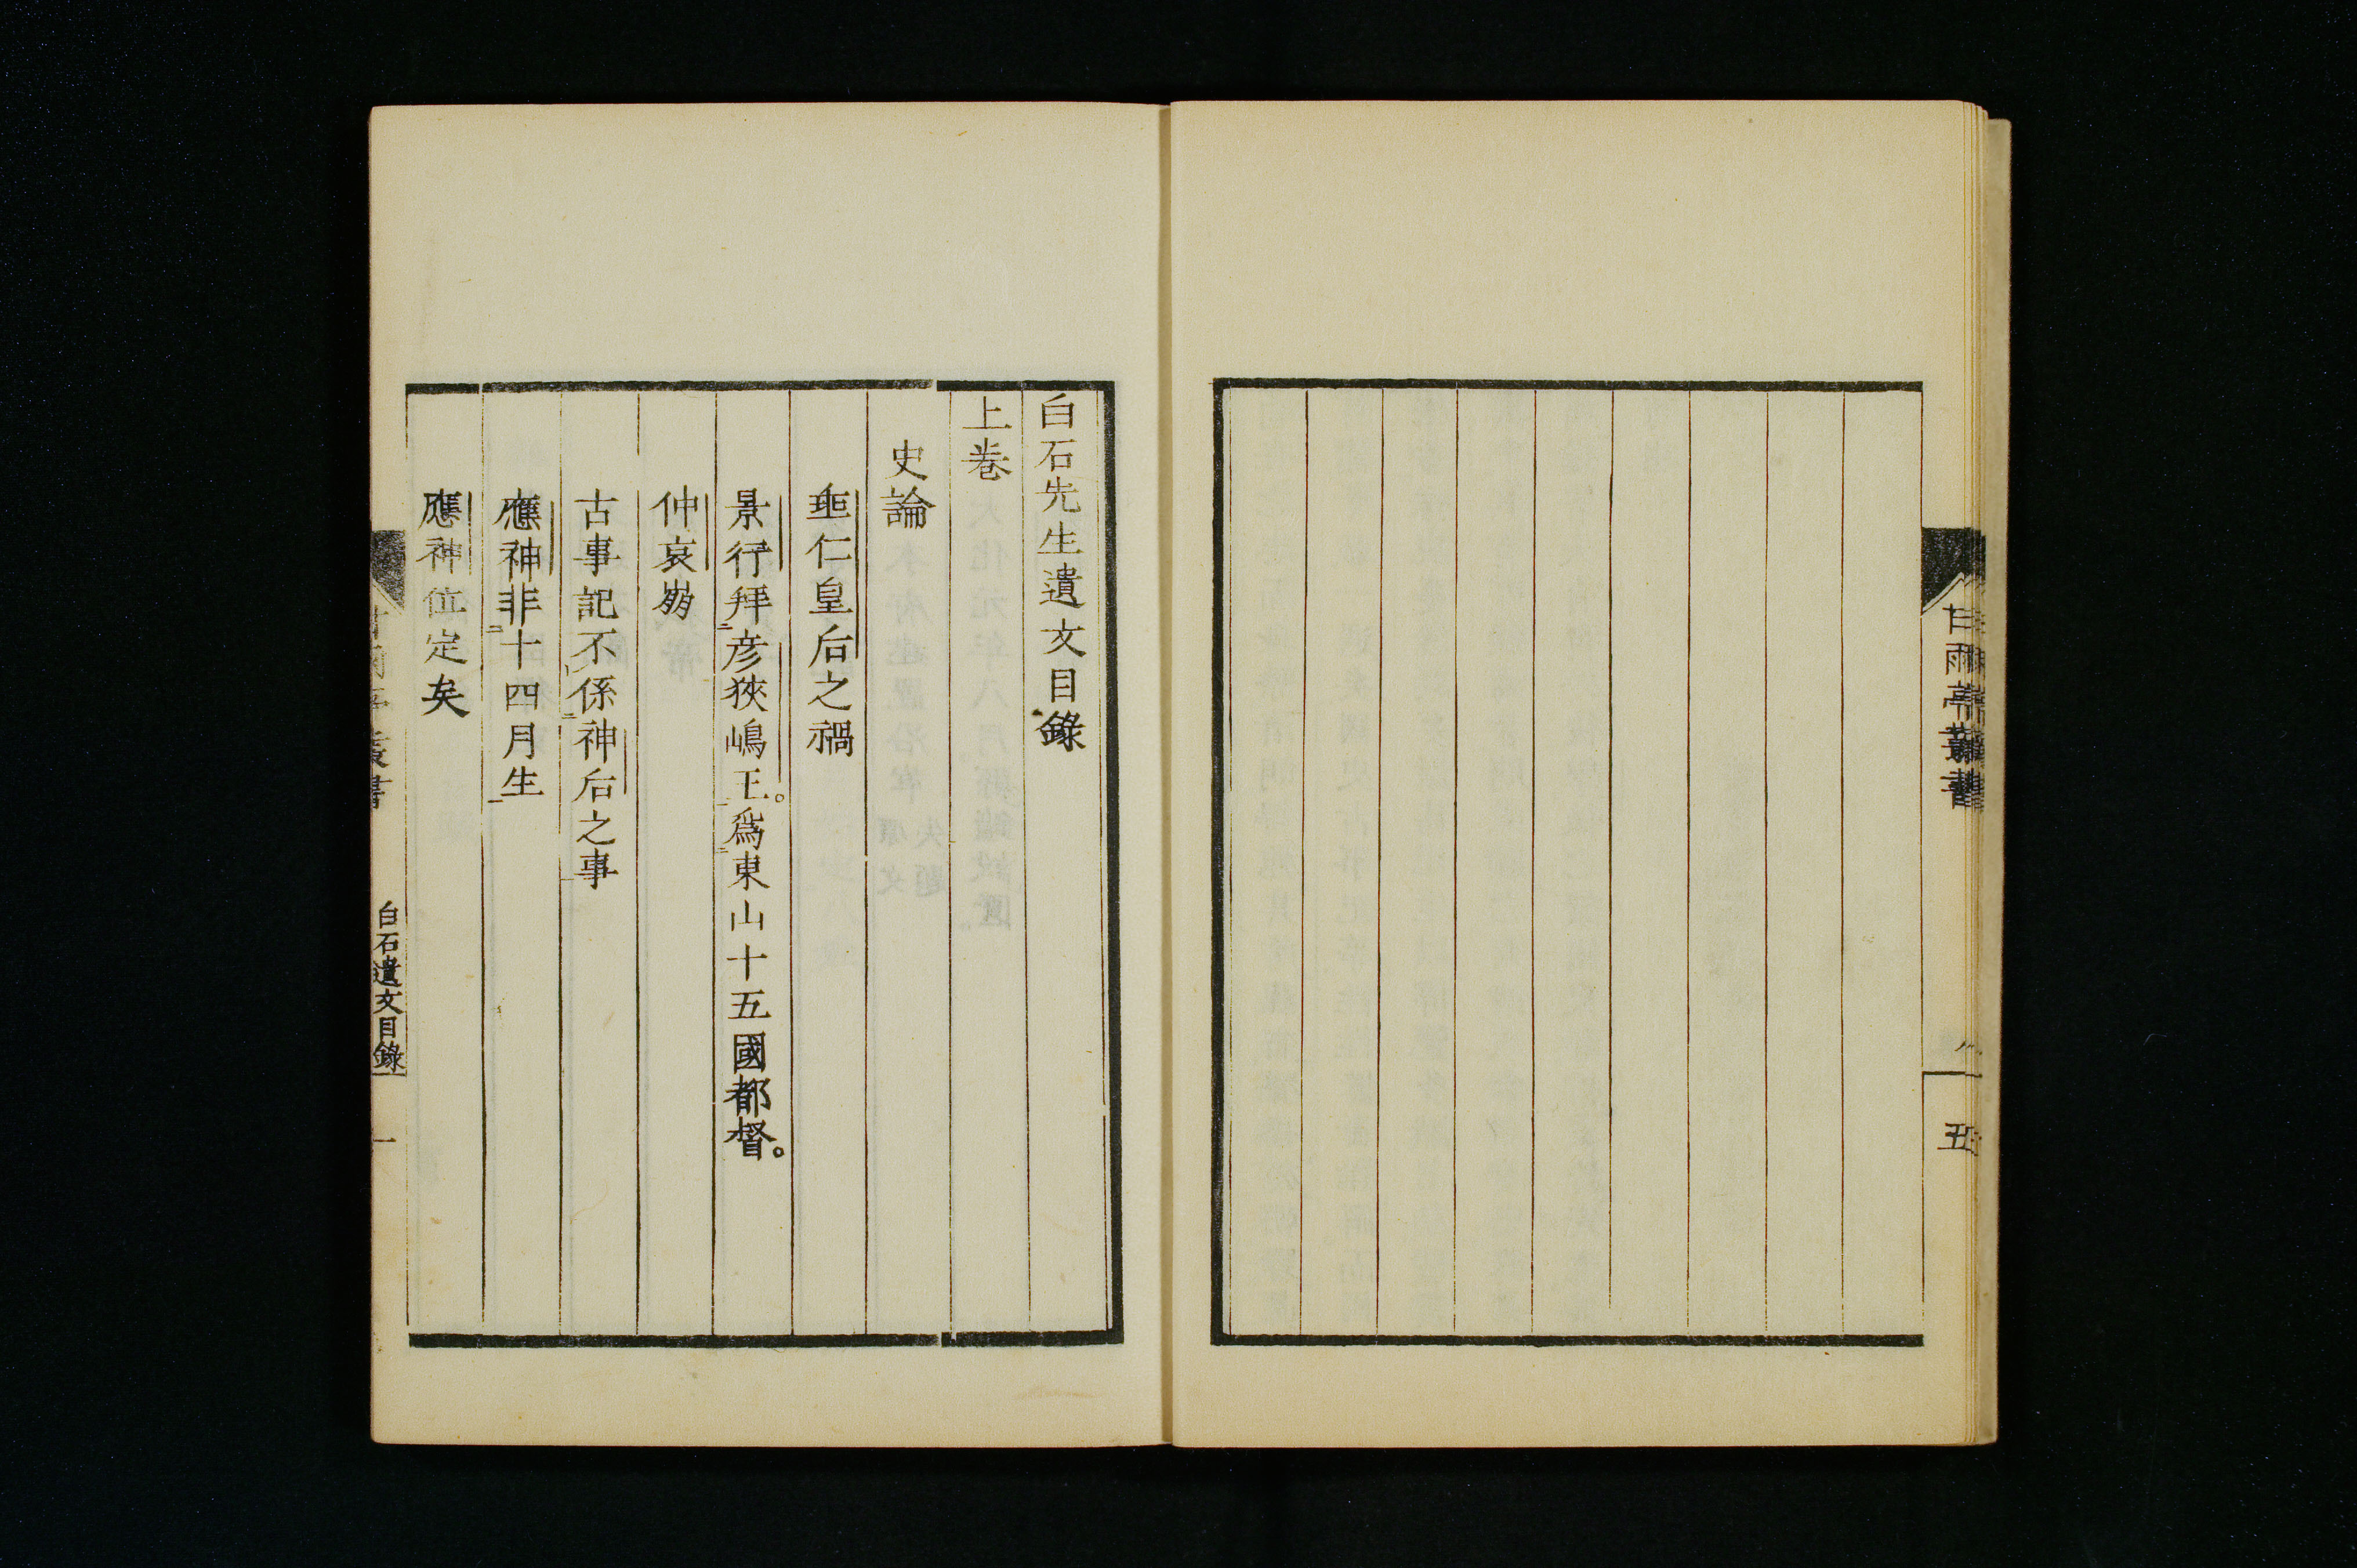 甘雨亭叢書
五
白石先生遺文目錄
上卷
史論
垂仁皇后之禍
景行拜彦狹嶋王。爲東山十五國都督。
仲哀崩
古事記不係神后之事
應神非十四月生
應神位定矣
白石遺文目錄
一